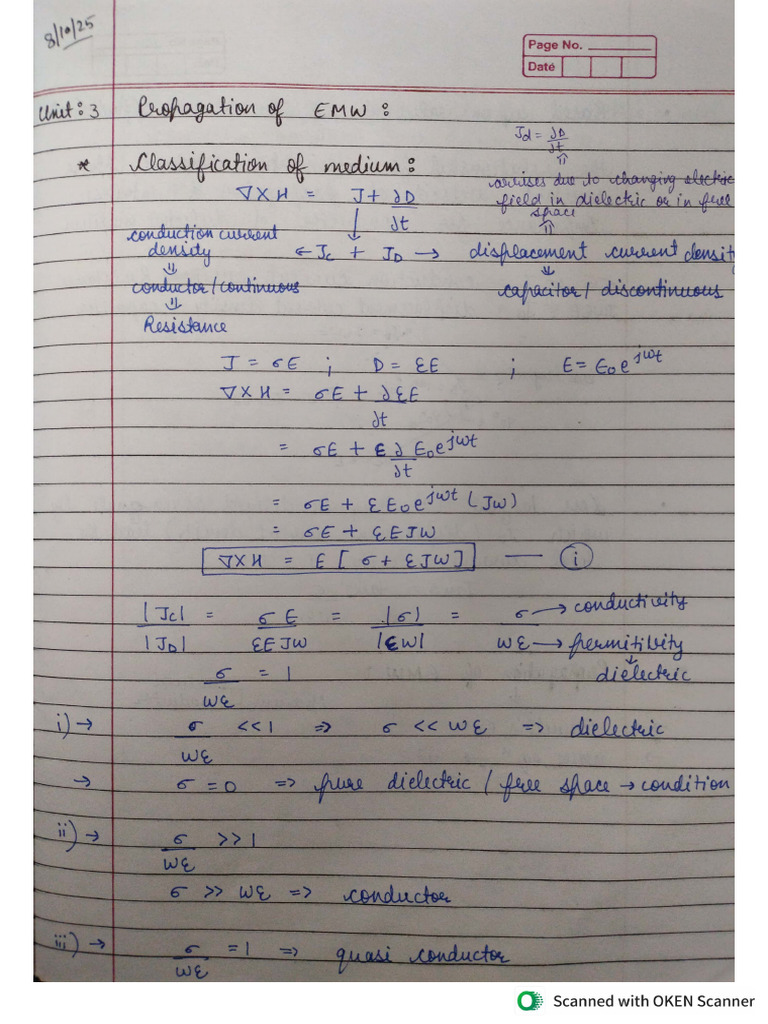 8/10/25
Page No.
Date
Unit: 3 Propagation of EMW:
Jd = ∂D/∂t
⇑
* Classification of medium:
arrises due to changing electric
field in dielectric or in free
space
⇑
∇XH = J + ∂D/∂t
conduction current
density ← Jc + JD → displacement current density
⇓ ⇓
conductor/continuous capacitor/discontinuous
⇓
Resistance
J = σE ; D = εE ; E = E₀e^jωt
∇XH = σE + ∂εE/∂t
= σE + ε ∂/∂t E₀e^jωt
= σE + εE₀e^jωt (Jω)
= σE + εEJω
∇XH = E [σ + εJω] — (i)
|Jc|/|JD| = σE/εEJω = |σ|/|εω| = σ/ωε
σ → conductivity
ωε → permitivity
↓
dielectric
σ/ωε = 1
i) → σ/ωε <<1 => σ << ωε => dielectric
→ σ = 0 => pure dielectric / free space → condition
ii) → σ/ωε >>1
σ >> ωε => conductor
iii) → σ/ωε =1 => quasi conductor
Scanned with OKEN Scanner